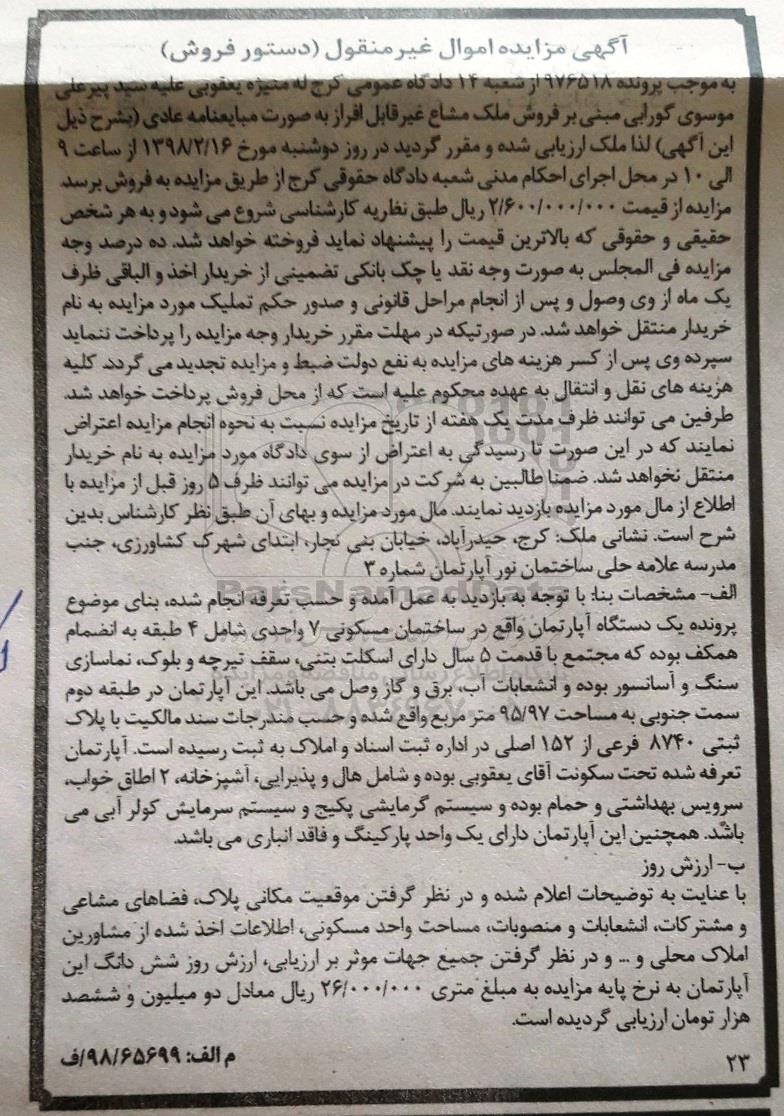 آگهی مزایده اموال غیرمنقول (دستور فروش)
به موجب پرونده ۹۷۶۵۱۸ از شعبه ۱۴ دادگاه عمومی کرج له منیژه یعقوبی علیه سید پیرعلی
موسوی گورابی مبنی بر فروش ملک مشاع غیرقابل افراز به صورت مبایعنامه عادی (بشرح ذیل
این آگهی) لذا ملک ارزیابی شده و مقرر گردید در روز دوشنبه مورخ ۱۳۹۸/۲/۱۶ از ساعت ۹
الی ۱۰ در محل اجرای احکام مدنی شعبه دادگاه حقوقی کرج از طریق مزایده به فروش برسد.
مزایده از قیمت ۲/۶۰۰/۰۰۰/۰۰۰ ریال طبق نظریه کارشناسی شروع می شود و به هر شخص
حقیقی و حقوقی که بالاترین قیمت را پیشنهاد نماید فروخته خواهد شد. ده درصد وجه
مزایده فی المجلس به صورت وجه نقد یا چک بانکی تضمینی از خریدار اخذ و الباقی ظرف
یک ماه از وی وصول و پس از انجام مراحل قانونی و صدور حکم تملیک مورد مزایده به نام
خریدار منتقل خواهد شد. در صورتیکه در مهلت مقرر خریدار وجه مزایده را پرداخت ننماید
سپرده وی پس از کسر هزینه های مزایده به نفع دولت ضبط و مزایده تجدید می گردد. کلیه
هزینه های نقل و انتقال به عهده محکوم علیه است که از محل فروش پرداخت خواهد شد.
طرفین می توانند ظرف مدت یک هفته از تاریخ مزایده نسبت به نحوه انجام مزایده اعتراض
نمایند که در این صورت تا رسیدگی به اعتراض از سوی دادگاه مورد مزایده به نام خریدار
منتقل نخواهد شد. ضمنا طالبین به شرکت در مزایده می توانند ظرف ۵ روز قبل از مزایده با
اطلاع از مال مورد مزایده بازدید نمایند. مال مورد مزایده و بهای آن طبق نظر کارشناس بدین
شرح است. نشانی ملک: کرج، حیدرآباد، خیابان بنی نجار، ابتدای شهرک کشاورزی، جنب
مدرسه علامه حلی ساختمان نور آپارتمان شماره ۳
الف- مشخصات بنا: با توجه به بازدید به عمل آمده و حسب تعرفه انجام شده، بنای موضوع
پرونده یک دستگاه آپارتمان واقع در ساختمان مسکونی ۷ واحدی شامل ۴ طبقه به انضمام
همکف بوده که مجتمع با قدمت ۵ سال دارای اسکلت بتنی، سقف تیرچه و بلوک، نماسازی
سنگ و آسانسور بوده و انشعابات آب، برق و گاز وصل می باشد. این آپارتمان در طبقه دوم
سمت جنوبی به مساحت ۹۵/۹۷ متر مربع واقع شده و حسب مندرجات سند مالکیت با پلاک
ثبتی ۸۷۴۰ فرعی از ۱۵۲ اصلی در اداره ثبت اسناد و املاک به ثبت رسیده است. آپارتمان
تعرفه شده تحت سکونت آقای یعقوبی بوده و شامل هال و پذیرایی، آشپزخانه، ۲ اطاق خواب،
سرویس بهداشتی و حمام بوده و سیستم گرمایشی پکیج و سیستم سرمایش کولر آبی می
باشد. همچنین این آپارتمان دارای یک واحد پارکینگ و فاقد انباری می باشد.
ب- ارزش روز
با عنایت به توضیحات اعلام شده و در نظر گرفتن موقعیت مکانی پلاک، فضاهای مشاعی
و مشترکات، انشعابات و منصوبات، مساحت واحد مسکونی، اطلاعات اخذ شده از مشاورین
املاک محلی و ... و در نظر گرفتن جمیع جهات موثر بر ارزیابی، ارزش روز شش دانگ این
آپارتمان به نرخ پایه مزایده به مبلغ متری ۲۶/۰۰۰/۰۰۰ ریال معادل دو میلیون و ششصد
هزار تومان ارزیابی گردیده است.
۲۳ م الف: ۹۸/۶۵۶۹۹/ف
ParsNamadData